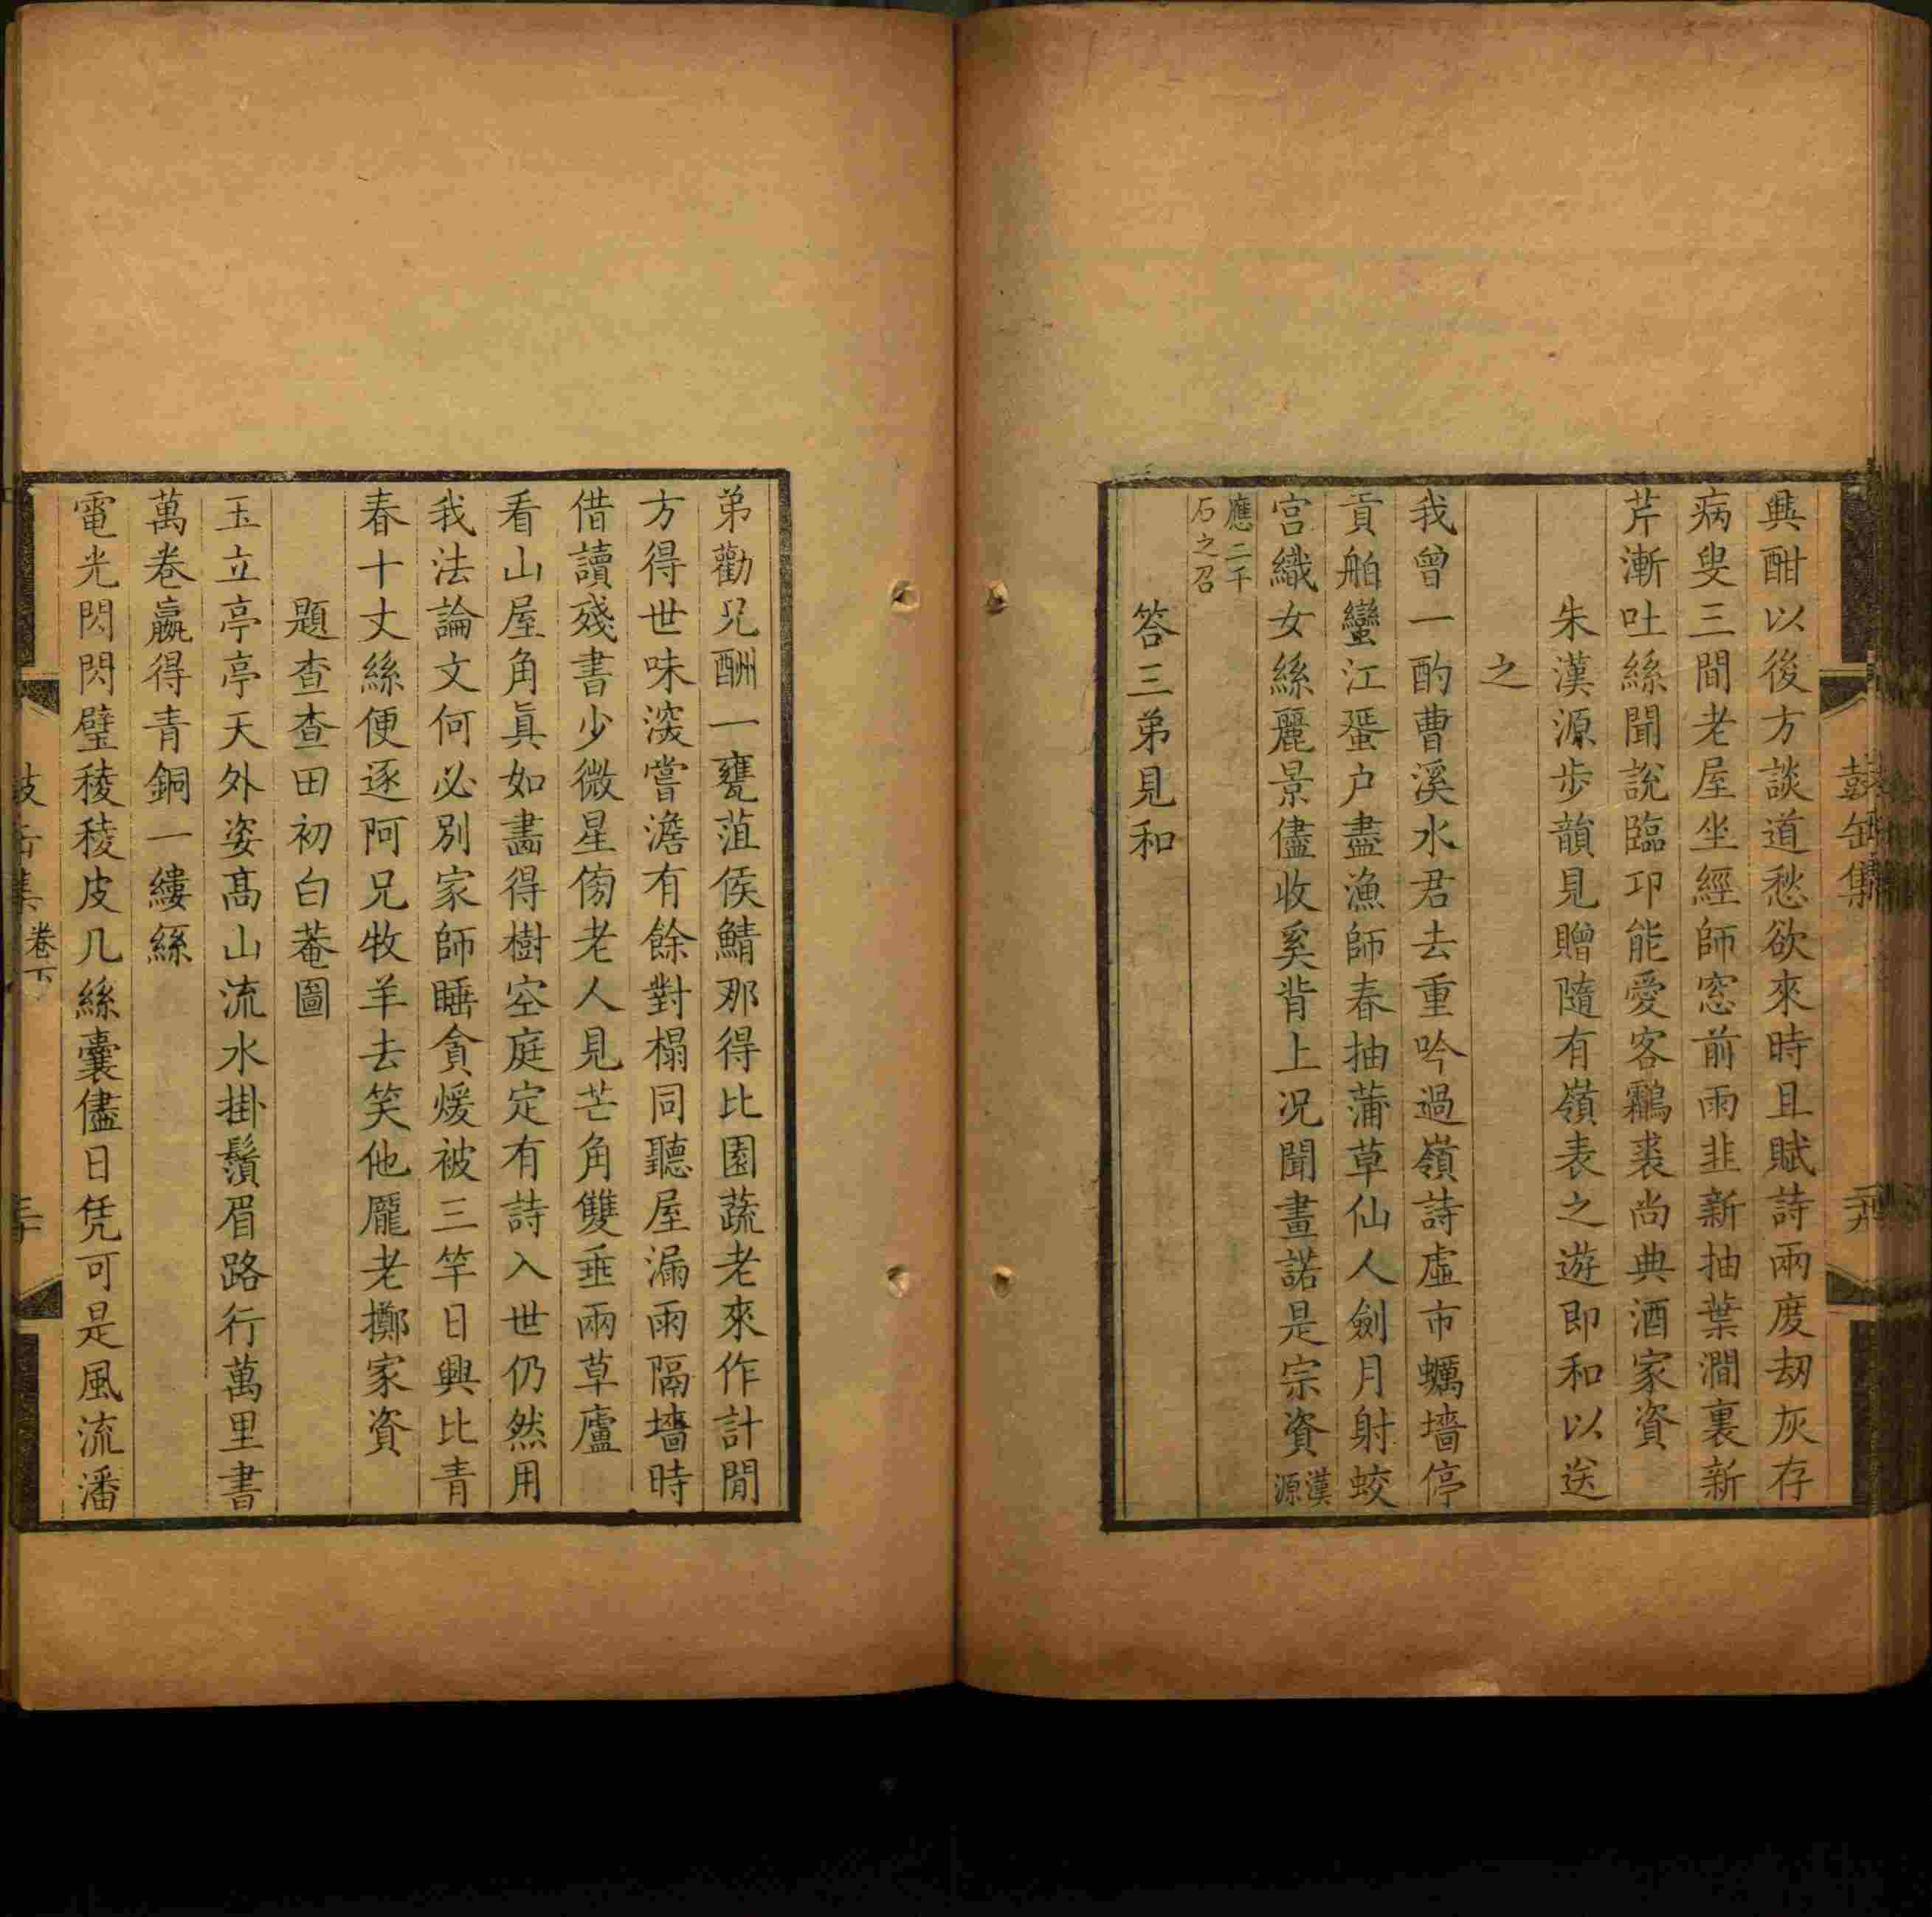 鼓缶集
興酣以後方談道愁欲來時且賦詩兩度刼灰存
病叟三間老屋坐經師窓前雨韭新抽葉澗裏新
芹漸吐絲聞說臨邛能愛客鷫裘尚典酒家資
朱漢源步韻見贈隨有嶺表之遊即和以送
之
我曾一酌曹溪水君去重吟過嶺詩虛市蠣墻停
貢舶蠻江蜑户盡漁師春抽蒲草仙人劍月射蛟
宮織女絲麗景儘收奚背上况聞畫諾是宗資漢源
應二千
石之召
答三弟見和
弟勸兄酬一甕菹侯鯖那得比園蔬老來作計閒
方得世味深嘗澹有餘對榻同聽屋漏雨隔墻時
借讀殘書少微星傍老人見芒角雙垂兩草廬
看山屋角眞如畵得樹空庭定有詩入世仍然用
我法論文何必別家師睡貪煖被三竿日興比青
春十丈絲便逐阿兄牧羊去笑他龐老擲家資
題查查田初白菴圖
玉立亭亭天外姿高山流水掛鬚眉路行萬里書
萬卷嬴得青銅一縷絲
電光閃閃璧稜稜皮几絲囊儘日凭可是風流潘
卷下